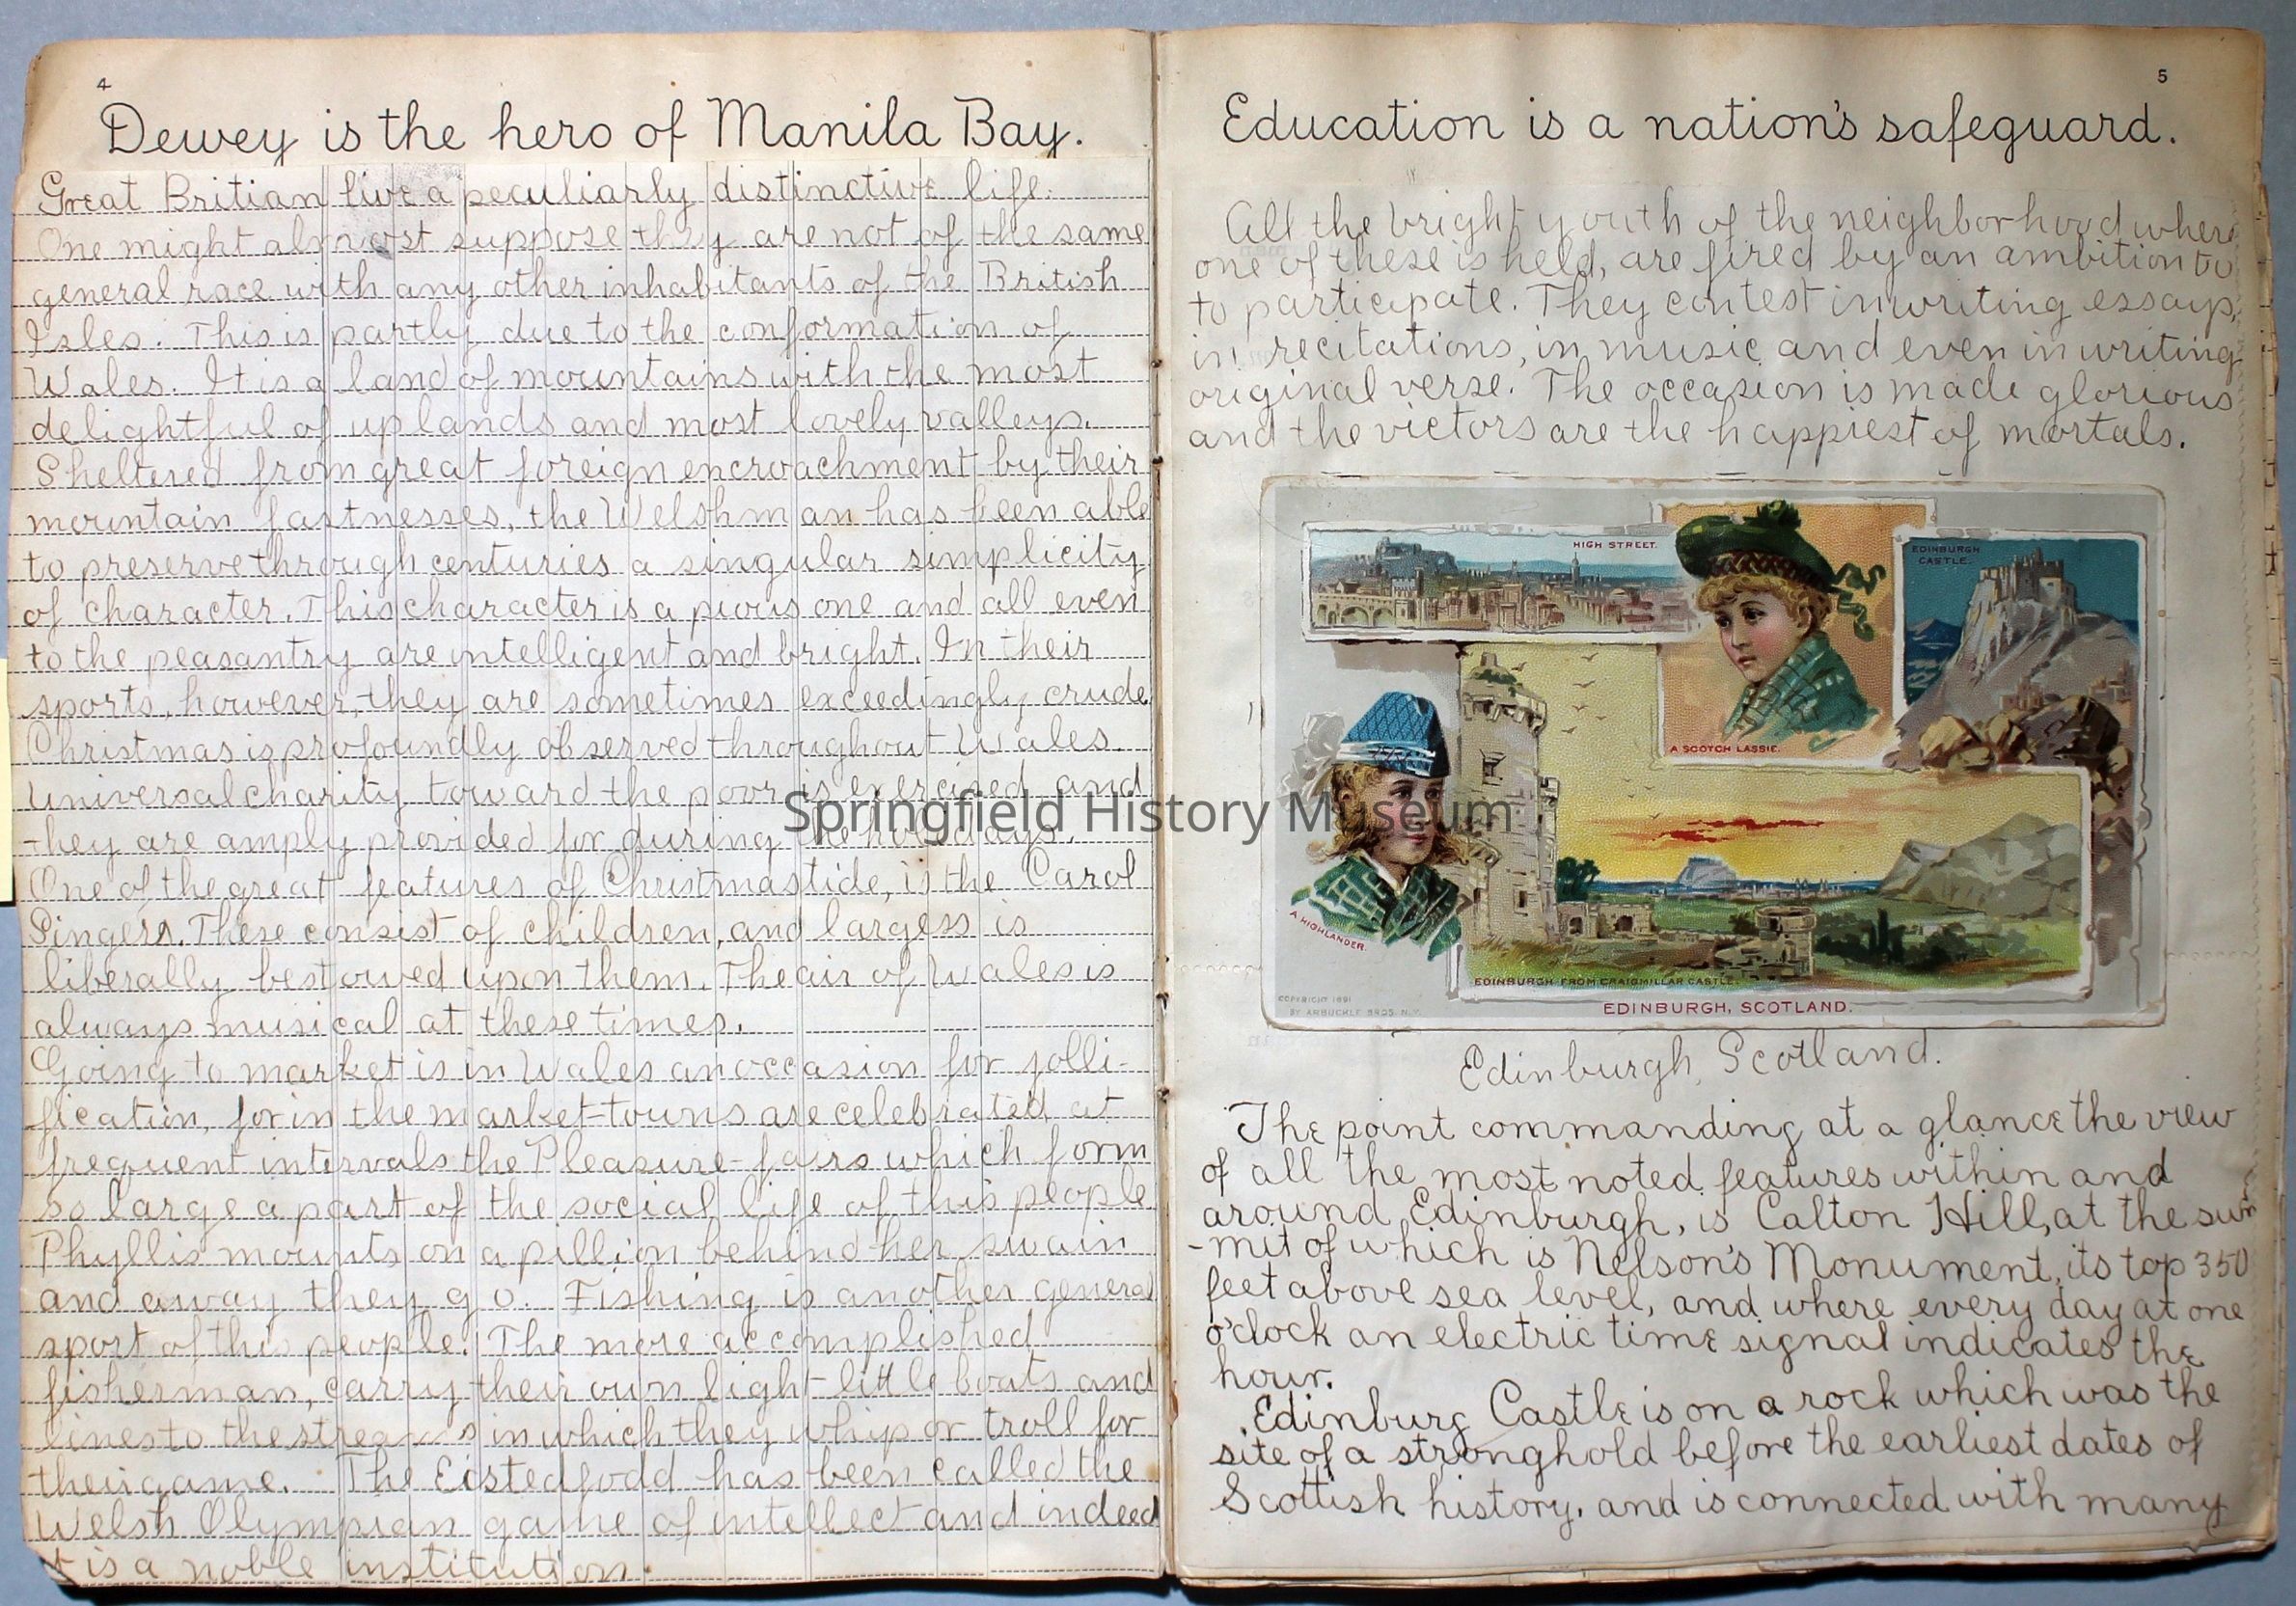 4
Dewey is the hero of Manila Bay.
Great Britian live a peculiarly distinctive life.
One might almost suppose they are not of the same
general race with any other inhabitants of the British
Isles. This is partly due to the conformation of
Wales. It is a land of mountains with the most
delightful of uplands and most lovely valleys.
Sheltered from great foreign encroachment by their
mountain fastnesses, the Welshman has been able
to preserve through centuries a singular simplicity
of character. This character is a pious one and all even
to the peasantry are intelligent and bright. In their
sports, however, they are sometimes exceedingly crude
Christmas is profoundly observed throughout Wales.
Universal charity toward the poor is exercised and
they are amply provided for during the holidays.
One of the great features of Christmastide, is the Carol
Singers. These consist of children, and largess is
liberally bestowed upon them. The air of Wales is
always musical at these times.
Going to market is in Wales an occasion for jolli-
fication, for in the market-towns are celebrated at
frequent intervals the Pleasure-fairs which form
so large a part of the social life of this people
Phyllis mounts on a pillion behind her swain
and away they go. Fishing is another general
sport of this people. The more accomplished
fisherman, carry their own light little boats and
lines to the streams in which they whip or troll for
their game. The Eistedfodd has been called the
Welsh Olympian game of intellect and indeed
it is a noble institution.
5
Education is a nation's safeguard.
All the bright youth of the neighborhood where
one of these is held, are fired by an ambition to
to participate. They contest in writing essays,
in recitations, in music and even in writing
original verse. The occasion is made glorious
and the victors are the happiest of mortals.
HIGH STREET.
EDINBURGH
CASTLE.
A SCOTCH LASSIE.
A HIGHLANDER.
EDINBURGH FROM CRAIGMILLAR CASTLE.
COPYRIGHT 1891
BY ARBUCKLE BROS. N.Y.
EDINBURGH, SCOTLAND.
Edinburgh, Scotland.
The point commanding at a glance the view
of all the most noted features within and
around Edinburgh, is Calton Hill, at the sum
-mit of which is Nelson's Monument, its top 350
feet above sea level, and where every day at one
o'clock an electric time signal indicates the
hour.
Edinburg Castle is on a rock which was the
site of a stronghold before the earliest dates of
Scottish history, and is connected with many
Springfield History Museum